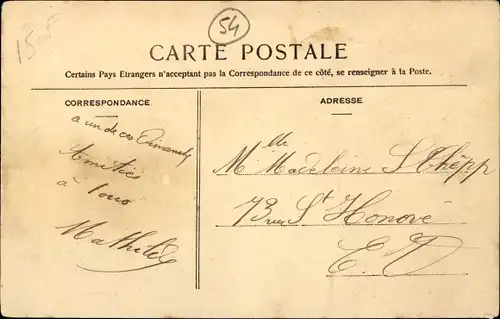 15F
54
CARTE POSTALE
Certains Pays Etrangers n'acceptent pas la Correspondance de ce côté, se renseigner à la Poste.
CORRESPONDANCE
a un de ces Dimanche
Amitiés
à tous
Mathilde
ADRESSE
Mlle Madeleine
73 rue St Honoré
E. V